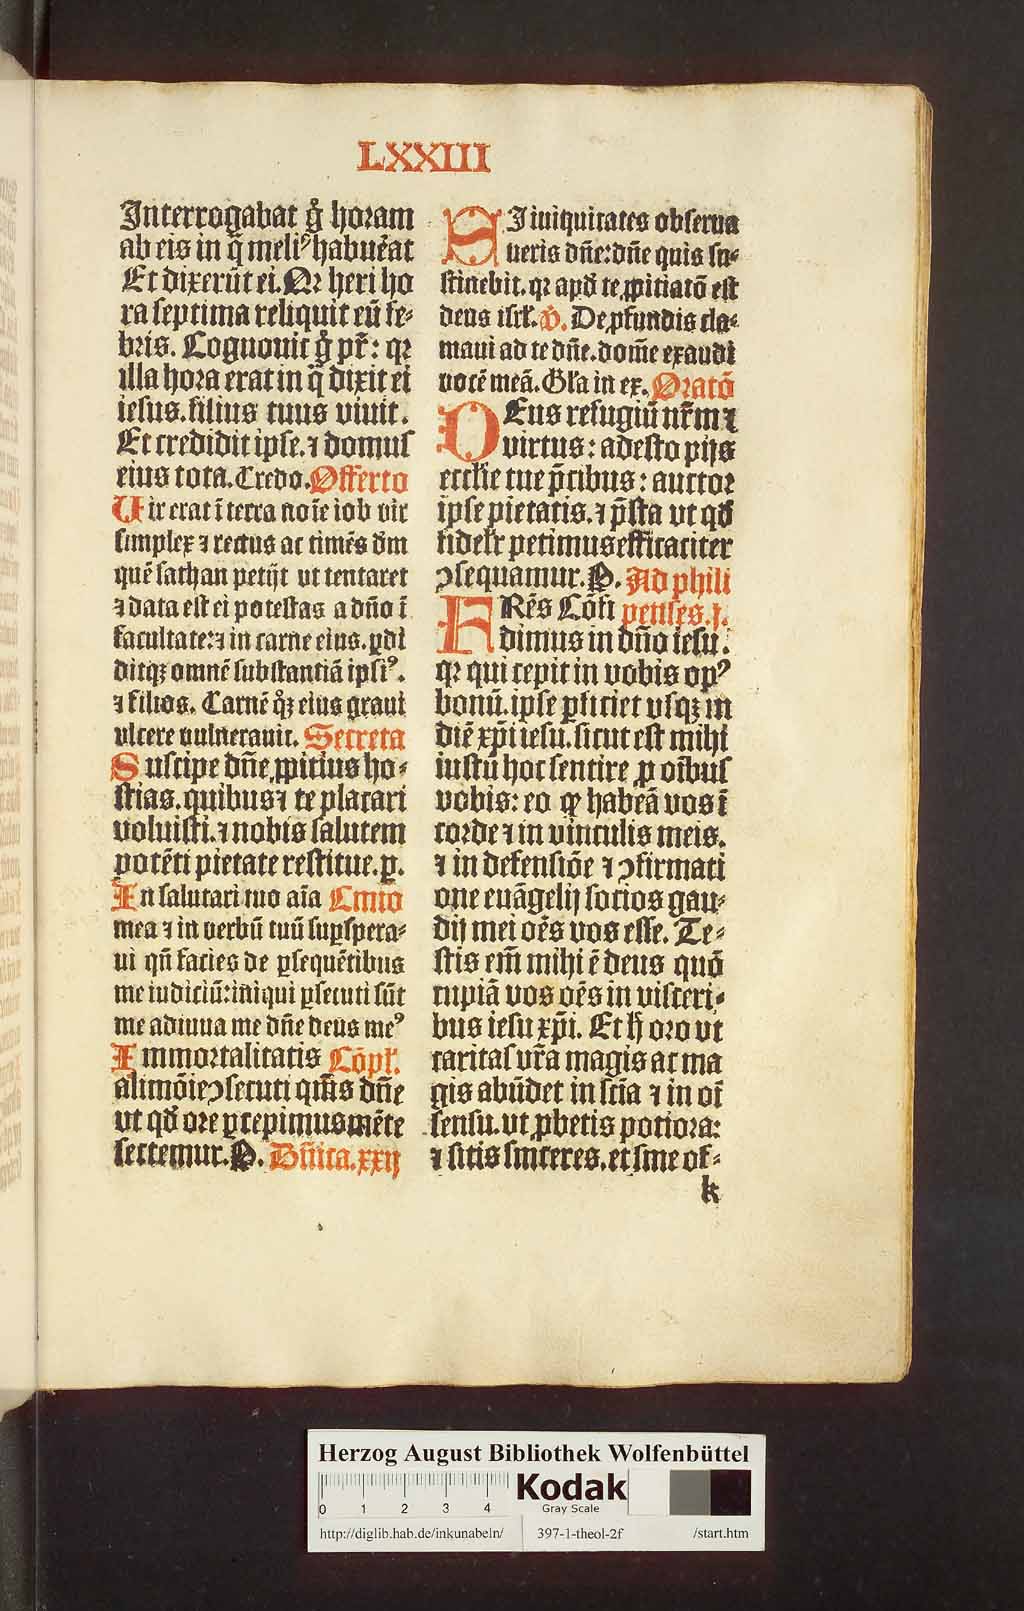 LXXIII
Interrogabat g̊ horam
ab eis in q̄ meli⁹ habuēat
Et dixerūt ei. Qꝛ heri ho
ra septima reliquit eū fe⸗
bris. Cognouit g̊ pr̄: qꝛ
illa hora erat in q̄ dixit ei
iesus. filius tuus viuit.
Et credidit ipse. ⁊ domus
eius tota. Credo. Offerto
Uir erat ī terra noīe iob vir
simplex ⁊ rectus ac timēs dm̄
quē sathan petijt vt tentaret
⁊ data est ei potestas a dn̄o ī
facultate: ⁊ in carne eius. ꝑdi
ditqꝫ omnē substantiā ipsi⁹.
⁊ filios. Carnē qꝫ eius graui
vlcere vulnerauit. Secreta
Suscipe dn̄e ꝓpitius ho⸗
stias. quibus ⁊ te placari
voluisti. ⁊ nobis salutem
potēti pietate restitue. p̱.
In salutari tuo aīa Cm̄io
mea ⁊ in verbū tuū suꝑspera⸗
ui qn̄ facies de ꝑsequētibus
me iudiciū: iniqui ꝑsecuti sūt
me adiuua me dn̄e deus me⁹
Immortalitatis Cōpl̄.
alimōie ꝯsecuti qm̄s dn̄e
vt qd̄ ore ꝑcepimus mēte
sectemur. P. Dn̄ica. xxij
SI iniquitates obserua
ueris dn̄e: dn̄e quis su⸗
stinebit. qꝛ apd̄ te ꝓpitiatō est
deus isrl̄. v̄. De ꝓfundis cla⸗
maui ad te dn̄e. dom̄e exaudi
vocē meā. Gl̄a in ex. Oratō
DEus refugiū nr̄m ⁊
virtus: adesto pijs
eccl̄ie tue p̄cibus: auctor
ipse pietatis. ⁊ p̄sta vt qd̄
fidelr̄ petimus efficaciter
ꝯsequamur. P. Ad phili
FRēs Cōfi penses. j.
dimus in dn̄o iesu:
qꝛ qui cepit in vobis op⁹
bonū. ipse ꝑficiet vsqꝫ in
diē xp̄i iesu. sicut est mihi
iustū hoc sentire ꝓ oībus
vobis: eo ꝙ habeā vos ī
corde ⁊ in vinculis meis.
⁊ in defensiōe ⁊ ꝯfirmati
one euāgelij socios gau⸗
dij mei oēs vos esse. Te⸗
stis em̄ mihi ē deus quō
cupiā vos oēs in visceri⸗
bus iesu xp̄i. Et h̄ oro vt
caritas vr̄a magis ac ma
gis abūdet in scīa ⁊ in oī
sensu. vt ꝓbetis potiora:
⁊ sitis sinceres. et sine of⸗
k
Herzog August Bibliothek Wolfenbüttel
0 1 2 3 4
Kodak
Gray Scale
http://diglib.hab.de/inkunabeln/ 397-1-theol-2f /start.htm